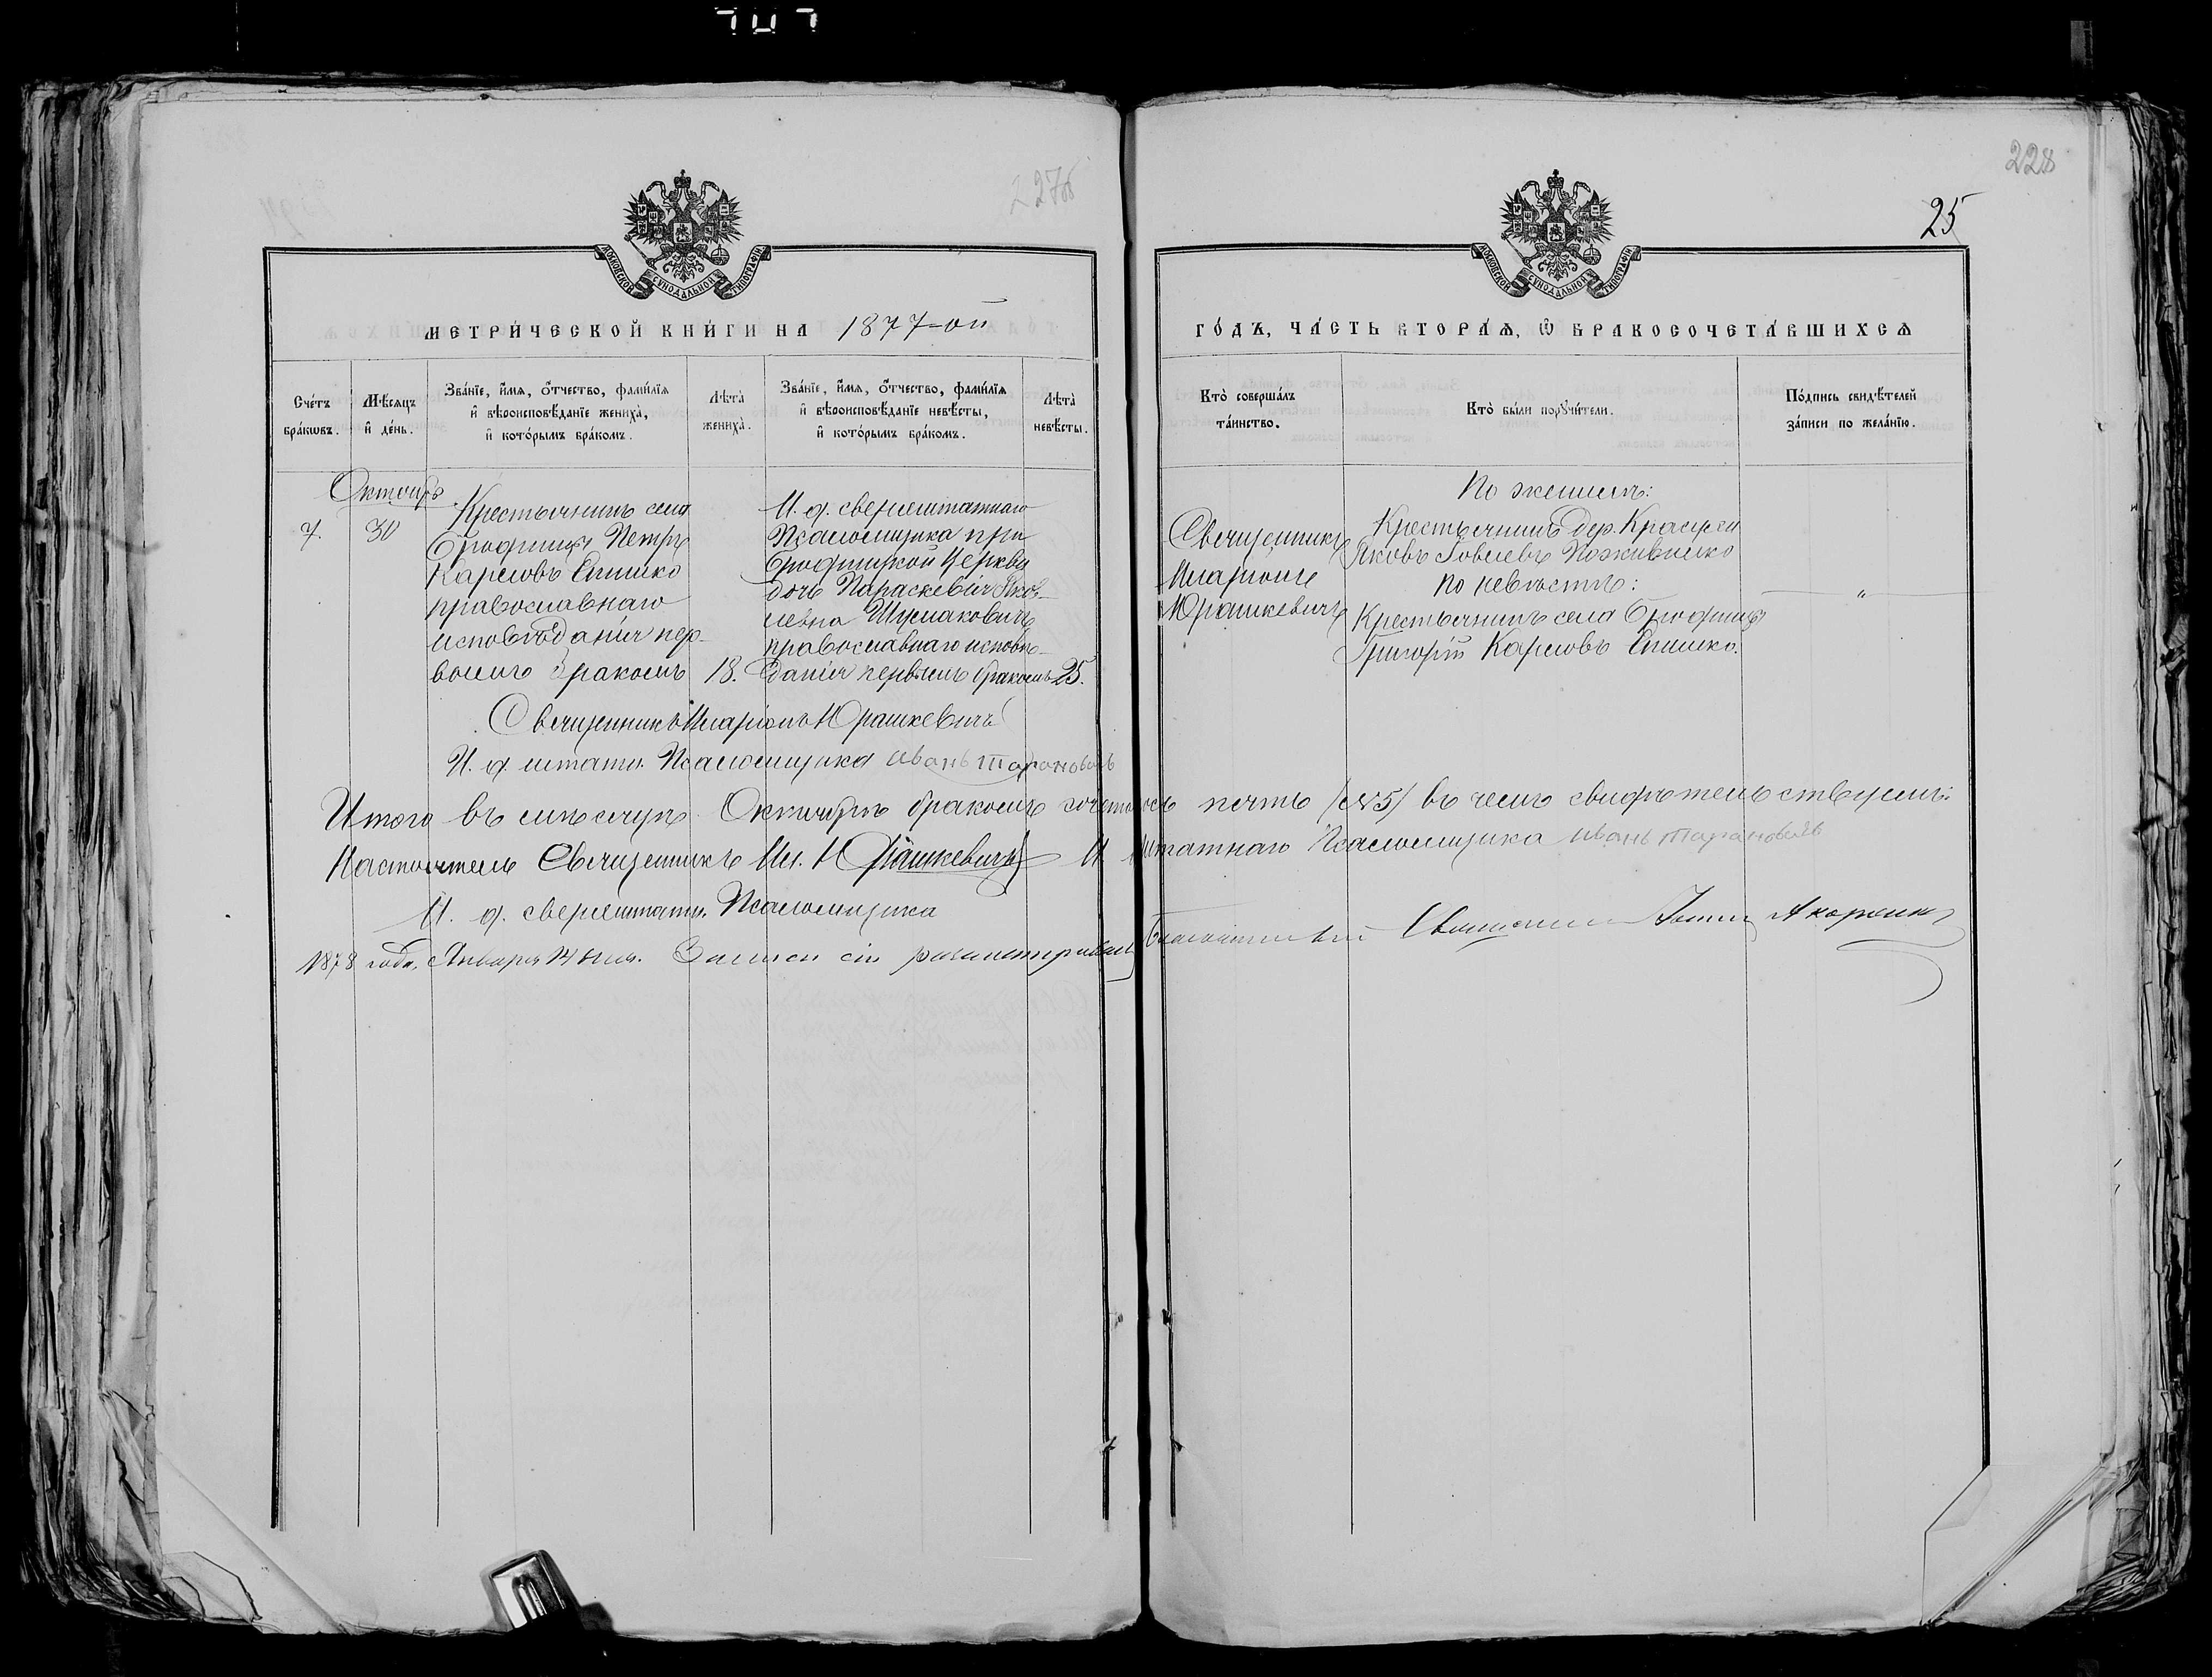 227об
228
25
МОСКОВСКОЙ СѴНОДАЛЬНОЙ ТИПОГРАФІИ
МОСКОВСКОЙ СѴНОДАЛЬНОЙ ТИПОГРАФІИ
МЕТРИ́ЧЕСКОЙ КНИ́ГИ НА 1877-ой
ГО́ДЪ, ЧА́СТЬ ВТОРА́Ѧ, Ѽ БРАКОСОЧЕТА́ВШИХСѦ
Сче́тъ бра́кωвъ.
Мѣ́сѧцъ и҆ де́нь.
Зва́нїе, и҆́мѧ, ѻ҆́тчество, фами́лїѧ
и҆ вѣроисповѣ́данїе жениха̀,
и҆ кото́рымъ бра́комъ.
Лѣта̀ жениха̀.
Зва́нїе, и҆́мѧ, ѻ҆́тчество, фами́лїѧ
и҆ вѣроисповѣ́данїе невѣ́сты,
и҆ кото́рымъ бра́комъ.
Лѣта̀ невѣ́сты.
Кто̀ соверша́лъ та́инство.
Кто̀ бы́ли порꙋчи́тели.
По́дпись свидѣ́телей за́писи по жела́нїю.
Октябрь
7. 30
Крестьянинъ села
Бродницы Петръ
Карповъ
православнаго
исповѣданія пер-
вымъ бракомъ 18.
И. д. сверхштатнаго
Псаломщика при
Бродницкой Церкви
дочь Параскевія Яков-
левна
православнаго исповѣ-
данія первымъ бракомъ 25.
Священникъ
Иларіонъ
Юрашкевичъ
По женихѣ:
Крестьянинъ дер.
Яковъ
по невѣстѣ:
Крестьянинъ села Бродницы
Григорій Карповъ
Священникъ Иларіонъ Юрашкевичъ
И. д. штатн. Псаломщика Иванъ Тарановичъ
Итого въ мѣсяцѣ Октябрѣ бракомъ сочеталось пять /№5/ въ чемъ свидѣтельствуемъ:
Настоятель Священникъ Ил. Юрашкевичъ И. штатнаго Псаломщика Иванъ Тарановичъ
И. д. сверхштатн. Псаломщика
1878 года, Января 14 дня. Записи сіи разсматривалъ Благочинный Священникъ